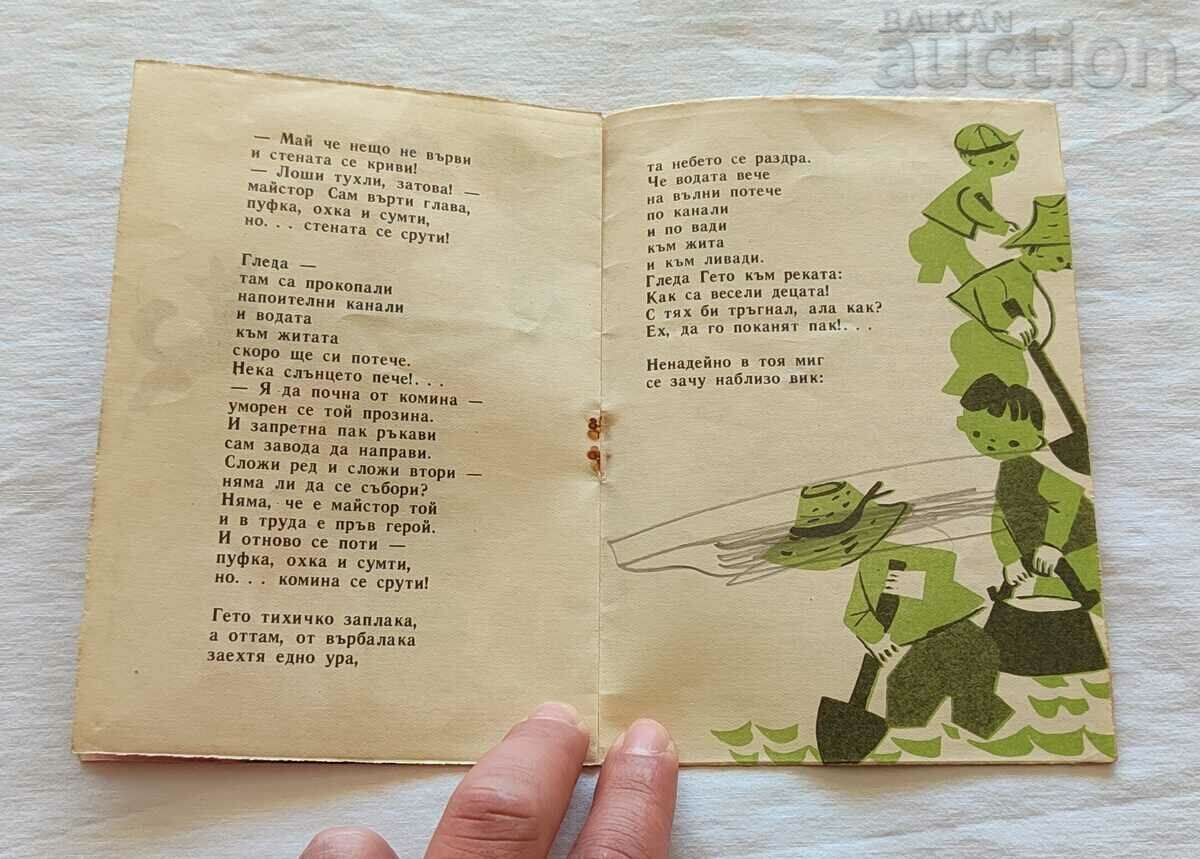 BALKAN
auction
— Май че нещо не върви
и стената се криви!
— Лоши тухли, затова! —
майстор Сам върти глава,
пуфка, охка и сумти,
но. . . стената се срути!
Гледа —
там са прокопали
напоителни канали
и водата
към житата
скоро ще си потече.
Нека слънцето пече!. . .
— Я да почна от комина —
уморен се той прозина.
И запретна пак ръкави
сам завода да направи.
Сложи ред и сложи втори —
няма ли да се събори?
Няма, че е майстор той
и в труда е пръв герой.
И отново се поти —
пуфка, охка и сумти,
но. . . комина се срути!
Гето тихичко заплака,
а оттам, от върбалака
заехтя едно ура,
та небето се раздра.
Че водата вече
на вълни потече
по канали
и по вади
към жита
и към ливади.
Гледа Гето към реката:
Как са весели децата!
С тях би тръгнал, ала как?
Ех, да го поканят пак!. . .
Ненадейно в тоя миг
се зачу наблизо вик: